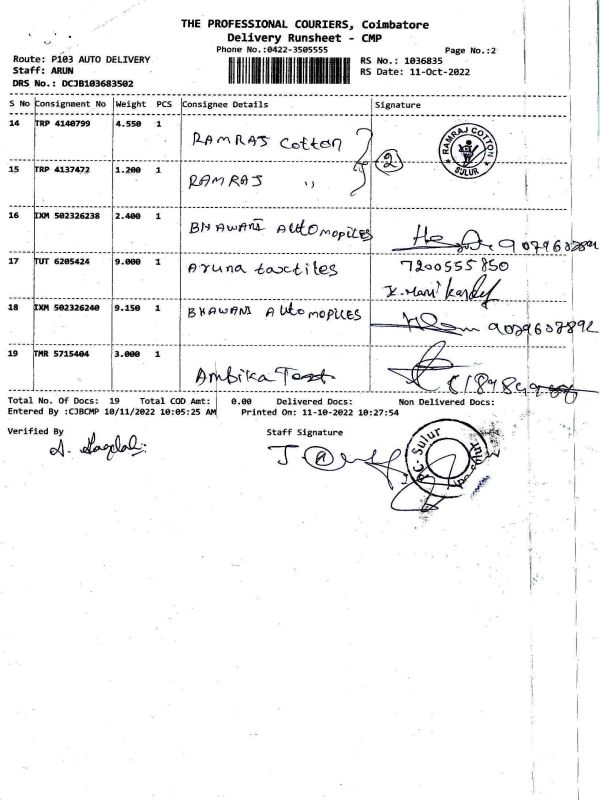 THE PROFESSIONAL COURIERS, Coimbatore
Delivery Runsheet - CMP
Phone No.:0422-3505555
Page No.:2
Route: P103 AUTO DELIVERY
RS No.: 1036835
Staff: ARUN
RS Date: 11-Oct-2022
DRS No.: DCJB103683502
S No Consignment No Weight PCS Consignee Details Signature
14 TRP 4140799 4.550 1 RAMRAJ Cotton
2
RAMRAJ COTTON SULUR
15 TRP 4137472 1.200 1 RAMRAJ ,,
16 IXM 502326238 2.400 1 BHAWANI AUTOMOPILES
17 TUT 6205424 9.000 1 Aruna taxctiles 7200555850
K. Mani
18 IXM 502326240 9.150 1 BHAWANI AUtoMOPILES 9079607892
19 TMR 5715404 3.000 1 Ambika Test
Total No. Of Docs: 19 Total COD Amt: 0.00 Delivered Docs: Non Delivered Docs:
Entered By :CJBCMP 10/11/2022 10:05:25 AM Printed On: 11-10-2022 10:27:54
Verified By
Staff Signature
Sulur